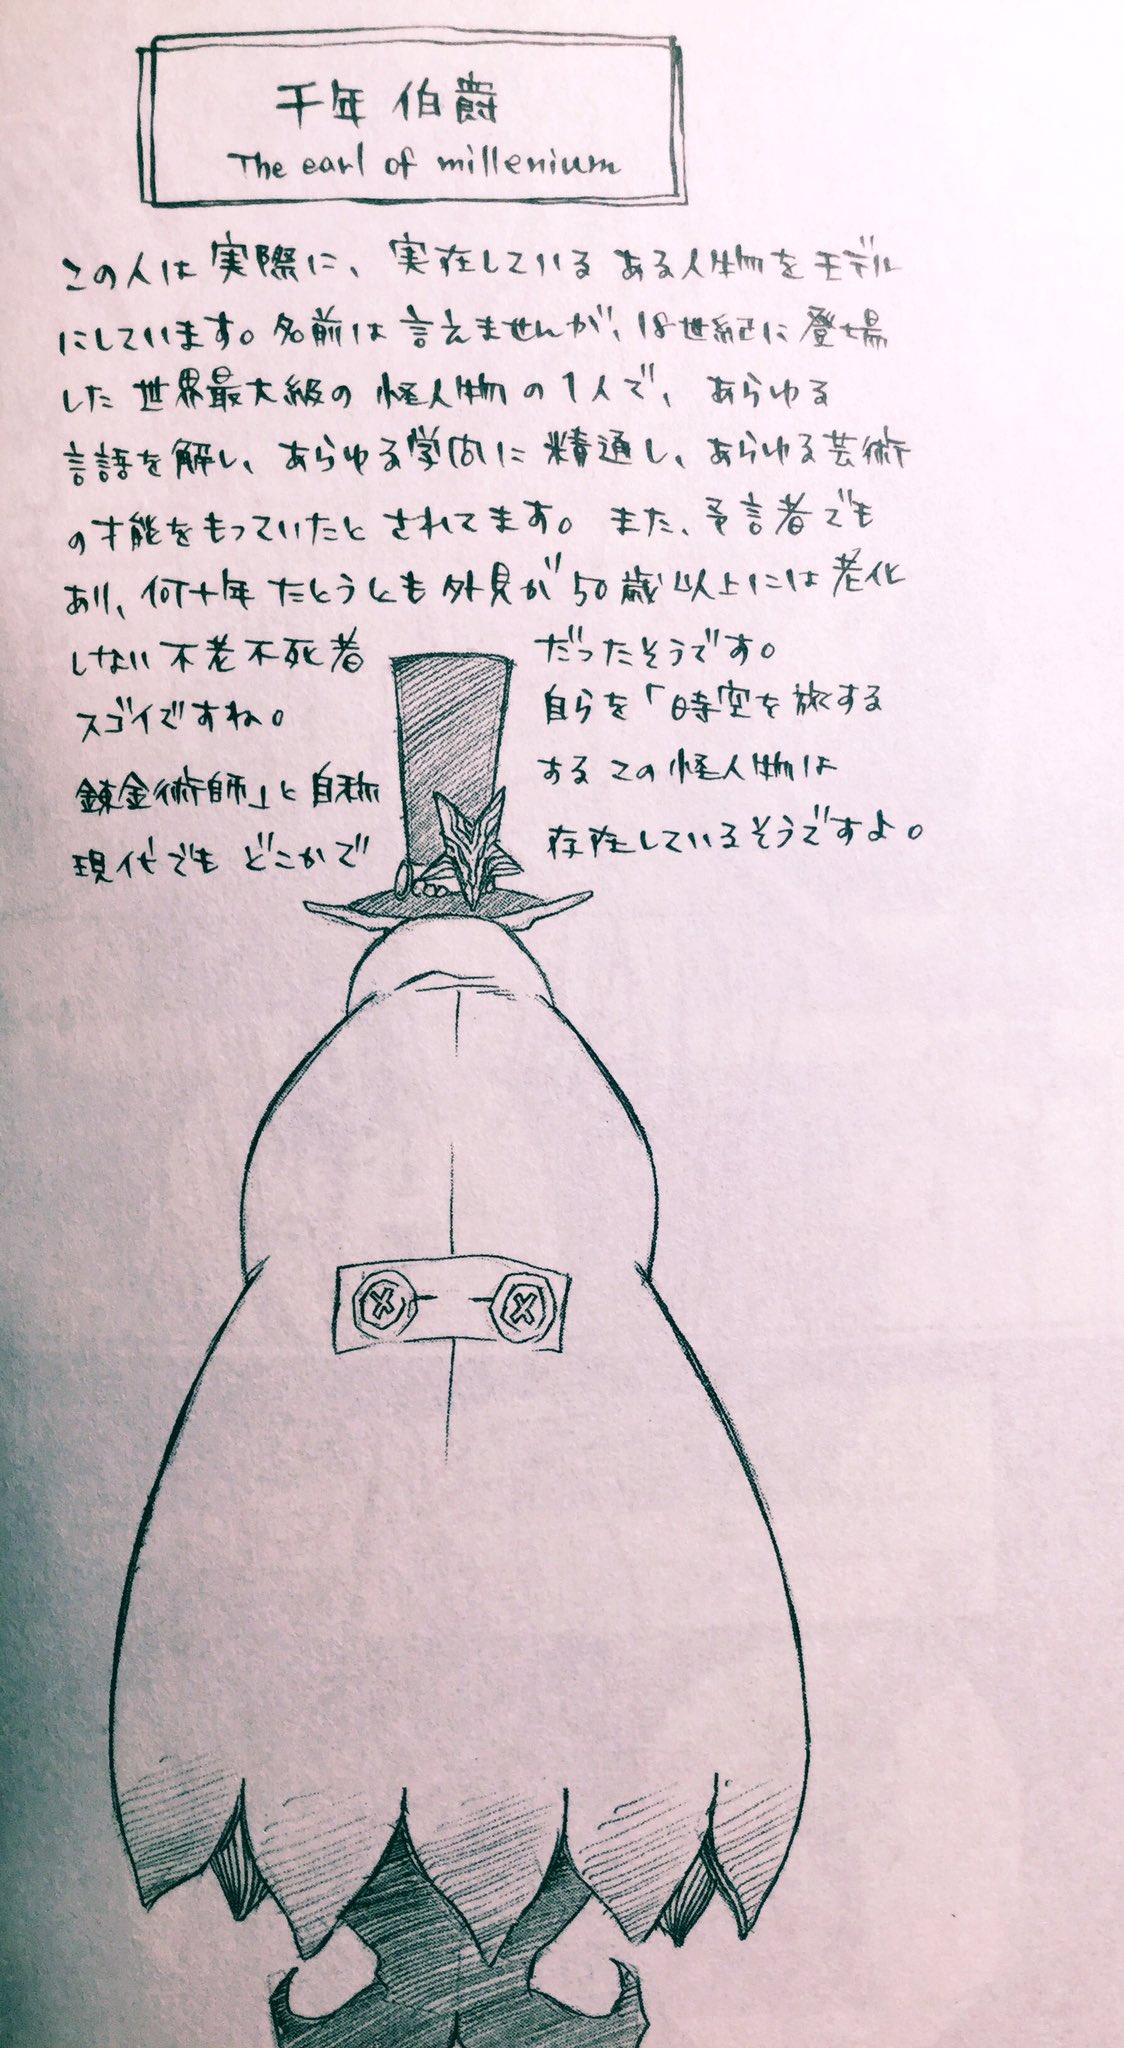 千年伯爵
The earl of millenium
この人は実際に、実在しているある人物をモデル
にしています。名前は言えませんが、18世紀に登場
した世界最大級の怪人物の1人で、あらゆる
言語を解し、あらゆる学問に精通し、あらゆる芸術
の才能をもっていたとされてます。また、予言者でも
あり、何十年たとうとも外見が50歳以上には老化
しない不老不死者だったそうです。
スゴイですね。自らを「時空を旅する
錬金術師」と自称するこの怪人物は
現代でもどこかで存在しているそうですよ。